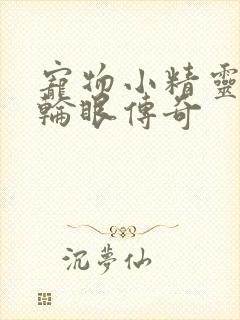 寵物小精靈
輪眼傳奇
沉夢仙